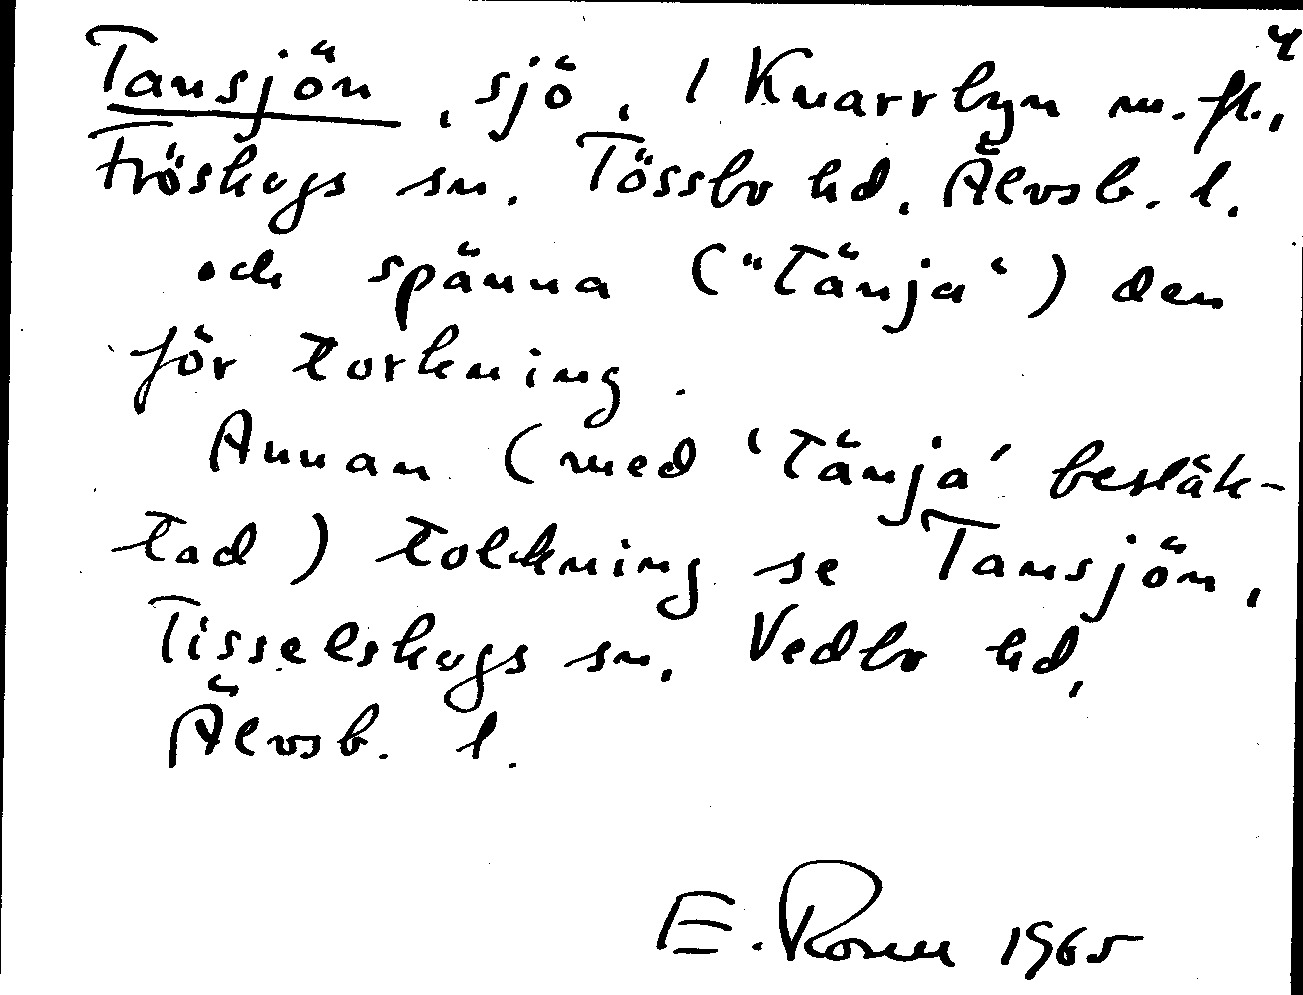 4
Tansjön, sjö, 1 Knarrbyn m.fl.,
Fröskogs sn. Tössbo hd, Älvsb. l.
och spänna ("tänja") den
för torkning.
Annan (med 'tänja' besläk-
tad) tolkning se Tansjön,
Tisselskogs sn. Vedbo hd,
Älvsb. l.
E. 1965